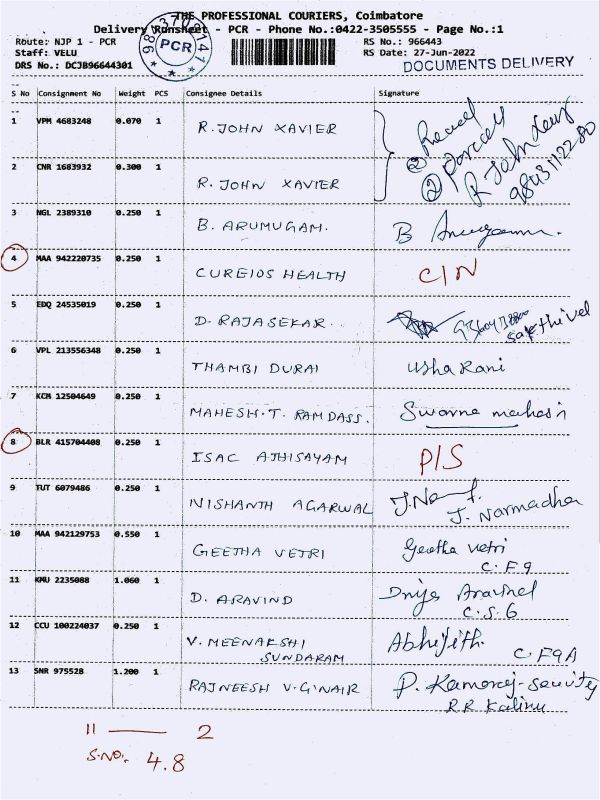 THE PROFESSIONAL COURIERS, Coimbatore
Delivery Runsheet - PCR - Phone No.:0422-3505555 - Page No.:1
Route: NJP 1 - PCR RS No.: 966443
Staff: VELU RS Date: 27-Jun-2022
DRS No.: DCJB96644301 PCR DOCUMENTS DELIVERY
S No Consignment No Weight PCS Consignee Details Signature
1 VPM 4683248 0.070 1 R. JOHN XAVIER
2 CNR 1683932 0.300 1 R. JOHN XAVIER
3 NGL 2389310 0.250 1 B. ARUMUGAM. B
4 MAA 942220735 0.250 1 CUREIOS HEALTH C/N
5 EDQ 24535019 0.250 1 D. RAJASEKAR.
6 VPL 213556348 0.250 1 THAMBI DURAI Usha Rani
7 KCM 12504649 0.250 1 MAHESH.T. RAMDASS.
8 BLR 415704408 0.250 1 ISAC ATHISAYAM P/S
9 TUT 6079486 0.250 1 NISHANTH AGARWAL
J. Narmadha
10 MAA 942129753 0.550 1 GEETHA VETRI Geetha Vetri
C.F9
11 KMU 2235088 1.060 1 D. ARAVIND
C.S.G
12 CCU 100224037 0.250 1 V. MEENAKSHI Abhijith.
SUNDARAM C.F9A
13 SNR 975528 1.200 1 RAJNEESH V.G.NAIR
11 — 2
S.NO. 4.8